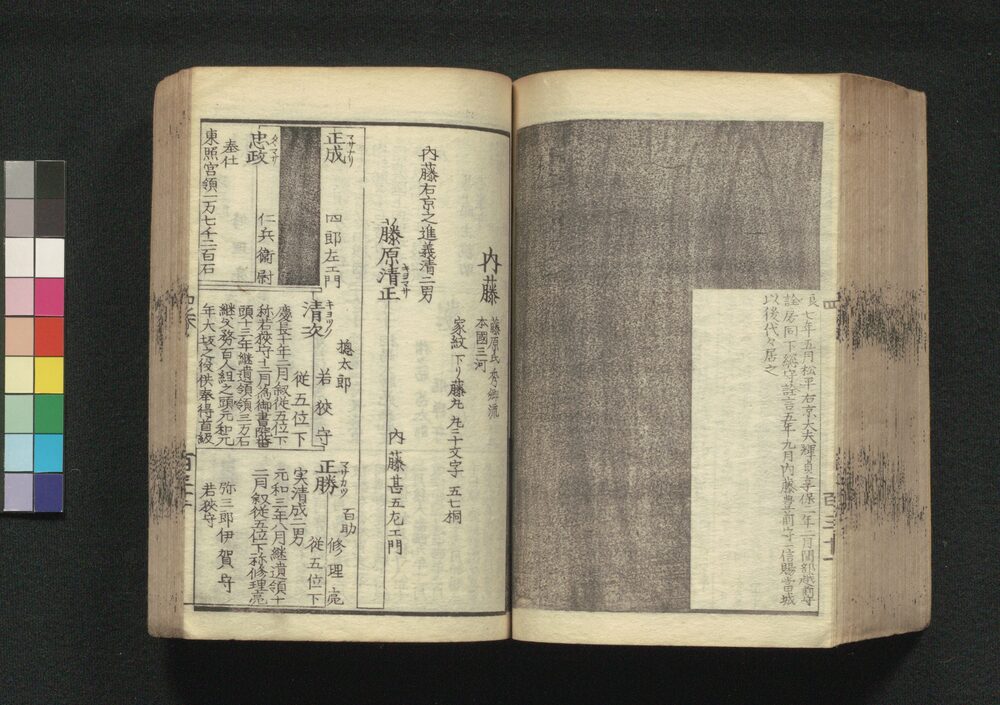 良七年五月松平右京大夫輝貞享保二年二月間部越前守
詮房同下総守詮言五年九月内藤豊前守弌信賜當城
以後代々居之
内藤
藤原氏 秀郷流
本國三河
家紋 下り藤丸 丸三十文字 五七桐
内藤右京之進義清二男
藤原清正
キヨマサ
内藤甚五左エ門
正成
マサナリ
四郎左エ門
忠政
タヾマサ
仁兵衛尉
奉仕
東照宮領一万七千二百石
清次
キヨツグ
摠太郎
若狭守
従五位下
慶長十年二月叙従五位下
称若狭守十一月為御書院番
頭十三年継遺領領三万石
継父務百人組之頭元和元
年大坂之役供奉得首級
正勝
マサカツ
百助
修理亮
従五位下
実清成二男
元和三年八月継遺領十
二月叙従五位下称修理亮
弥三郎伊賀守
若狭守